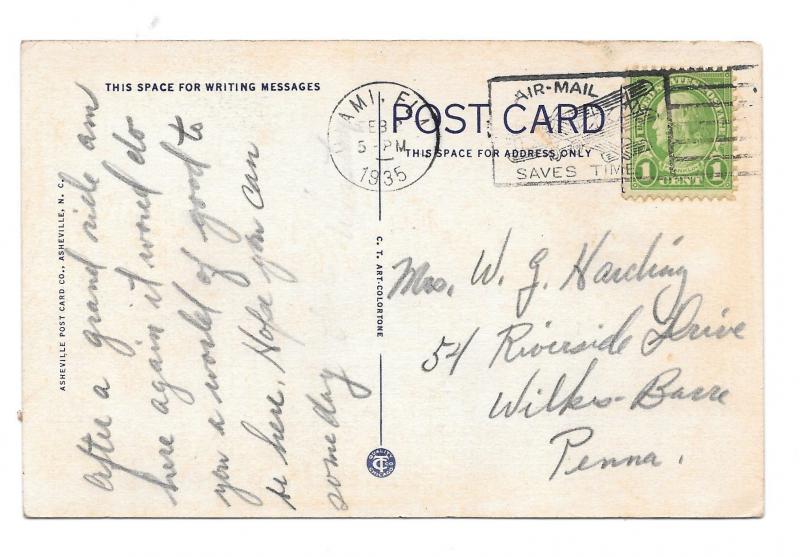 THIS SPACE FOR WRITING MESSAGES
After a grand ride am
here again it would do
you a world of good to
be here. Hope you can
someday
ASHEVILLE POST CARD CO., ASHEVILLE, N. C.
C. T. ART-COLORTONE
QUALITY
CT
CHICAGO
MIAMI, FLA
FEB
5-PM
1935
POST CARD
THIS SPACE FOR ADDRESS ONLY
AIR-MAIL
SAVES TIME
1 CENT 1
Mrs. W. G. Harding
54 Riverside Drive
Wilkes-Barre
Penna.